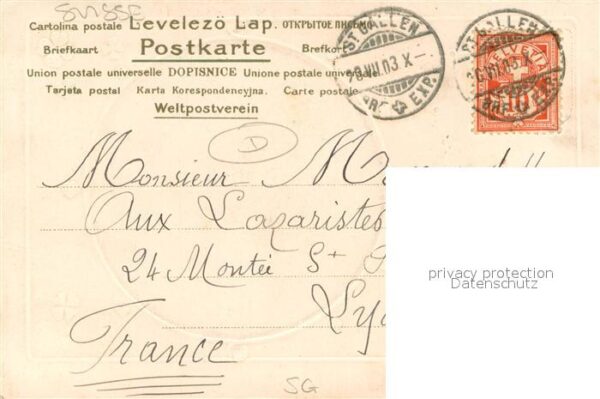 SUISSE
Cartolina postale Levelezö Lap. ОТКРЫТОЕ ПИСЬМО
Briefkaart Postkarte Brefkort
Union postale universelle DOPISNICE Unione postale universale
Tarjeta postal Karta Korespondencyjna. Carte postale
Weltpostverein
ST. GALLEN
VII. 03. X
BRF. EXP.
ST. GALLEN
VII. 03. X
BRF. EXP.
HELVETIA
10
D
Monsieur
Aux Lazaristes
24 Montée St
Ly
France
SG
privacy protection
Datenschutz